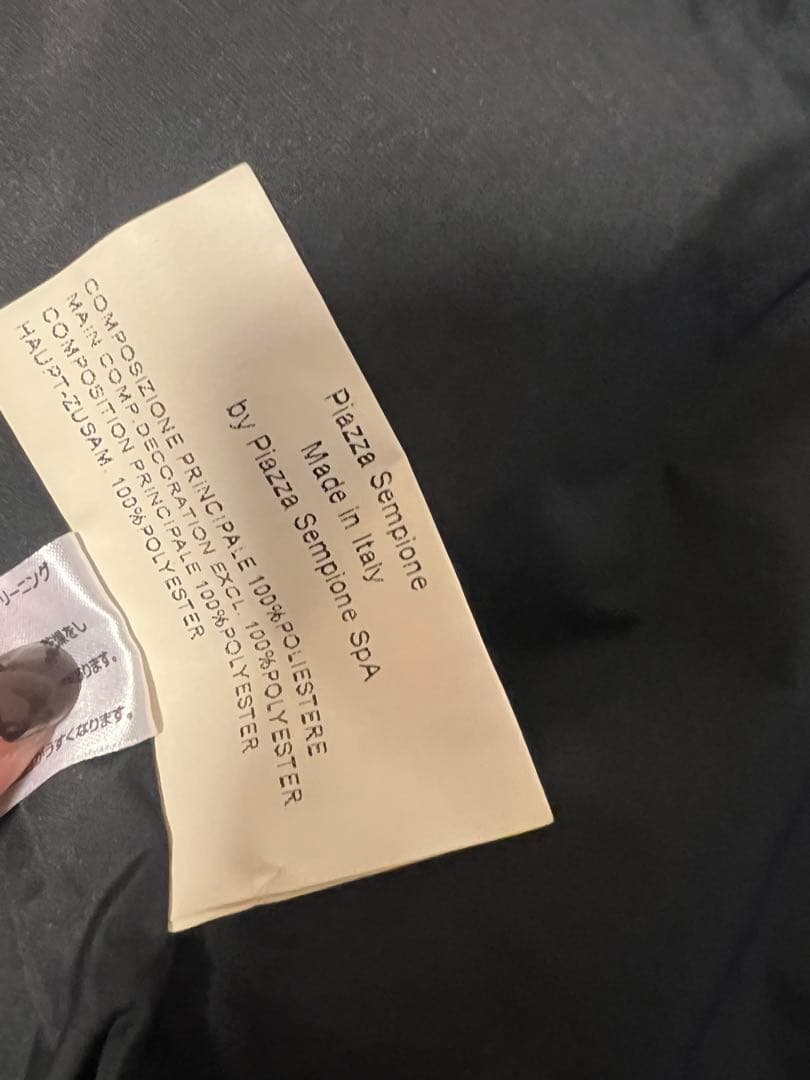 Piazza Sempione
Made in Italy
by Piazza Sempione SpA
COMPOSIZIONE PRINCIPALE 100%POLIESTERE
MAIN COMP.DECORATION EXCL. 100%POLYESTER
COMPOSITION PRINCIPALE 100%POLYESTER
HAUPT-ZUSAM. 100%POLYESTER
リーニング
をし
ります。
うすくなります。